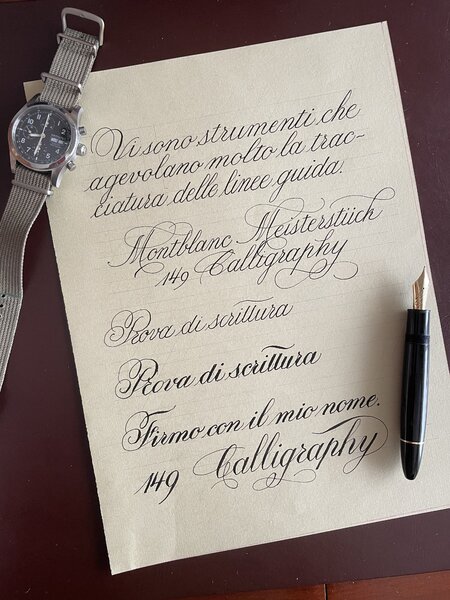 Vi sono strumenti che
agevolano molto la trac-
ciatura delle linee guida.
Montblanc Meisterstück
149 Calligraphy
Prova di scrittura
Prova di scrittura
Firmo con il mio nome.
149 Calligraphy